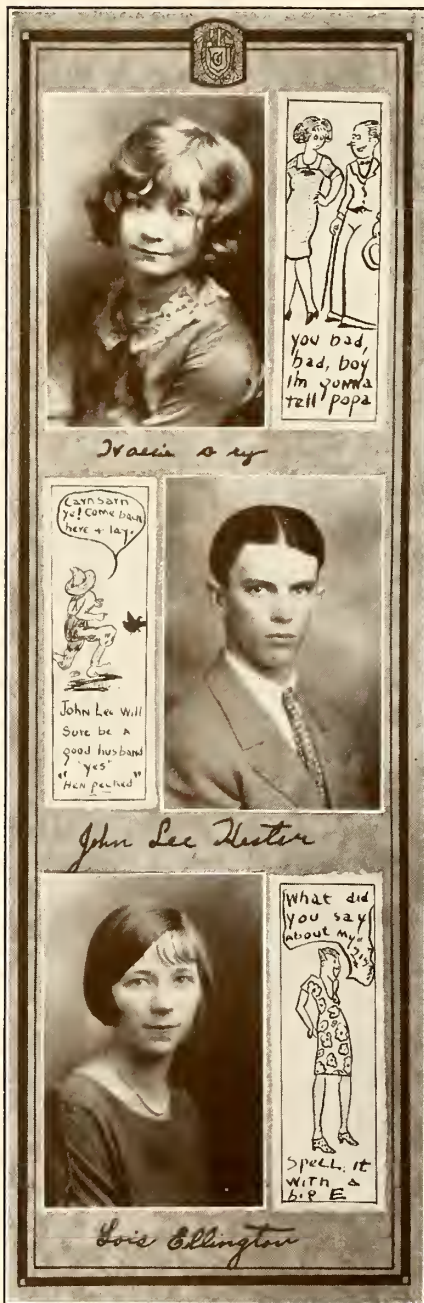 you bad,
bad, boy
Im gonna
tell popa
Carn sarn
ye! Come back
here + lay.
John Lee Will
Sure be a
good husband
"yes"
"Hen pecked"
John Lee Hester
What did
you say
About my
Spell it
with a
big E
Lois Ellington